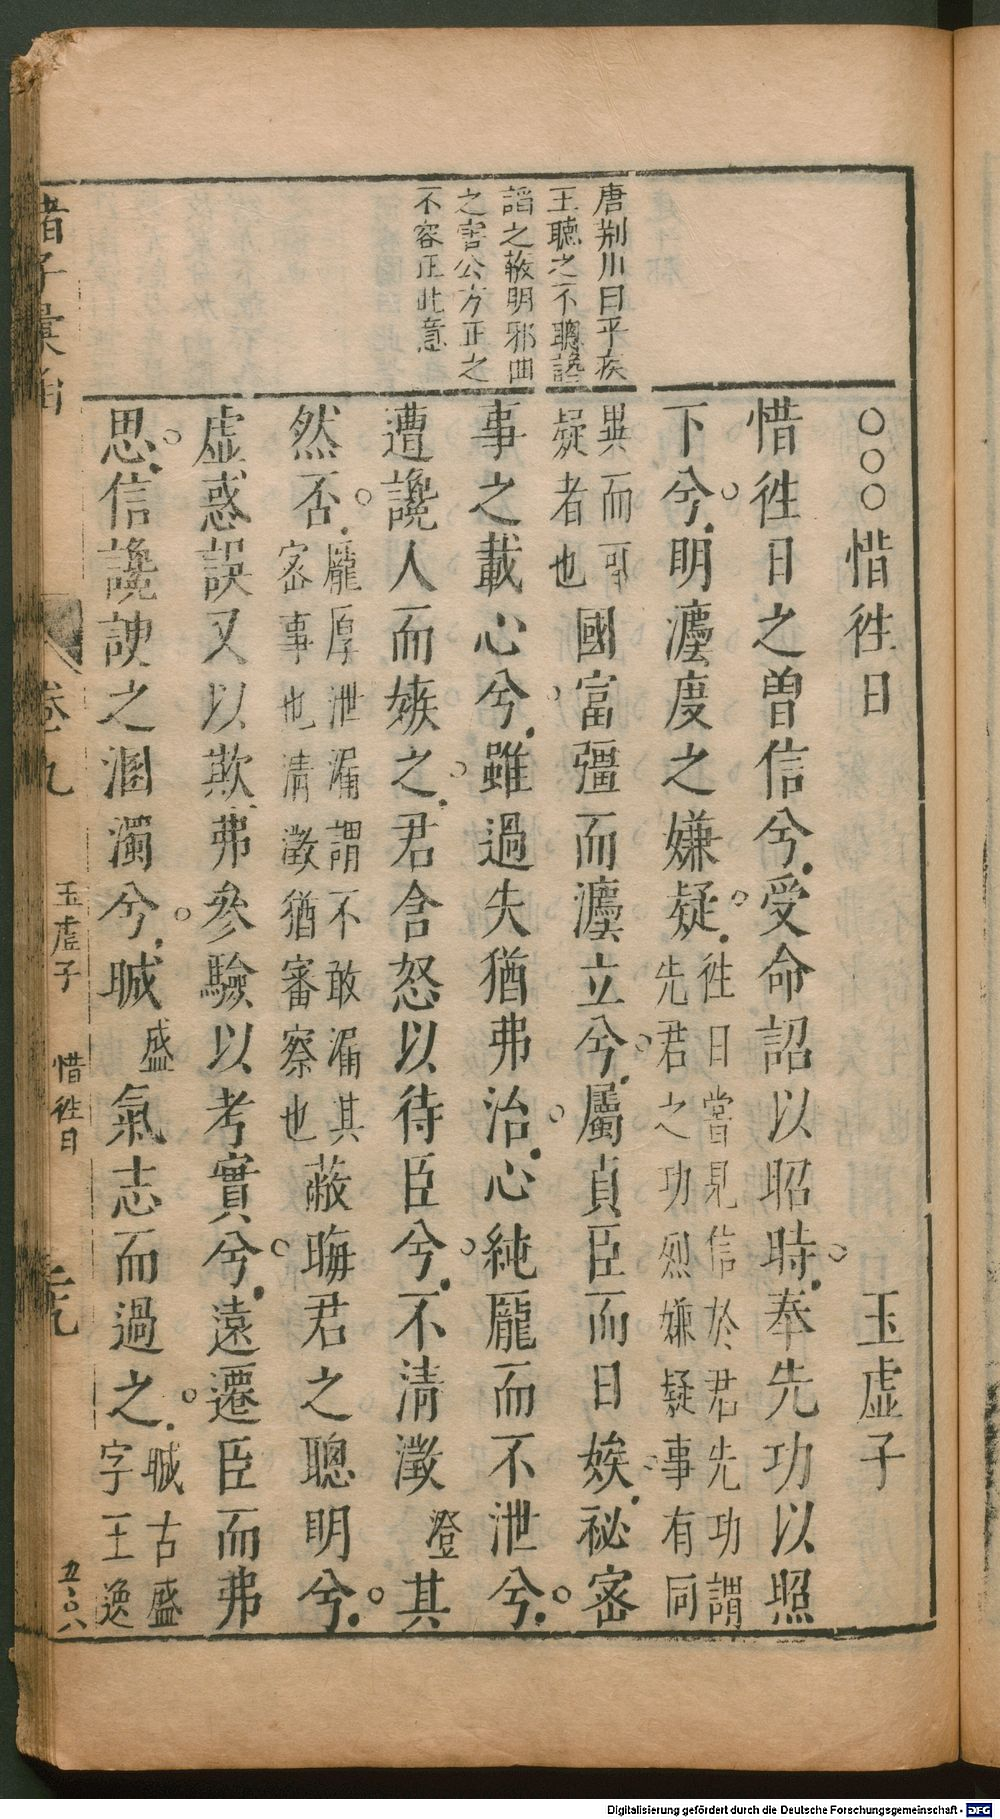 唐荆川曰平疾
王聽之不聰讒
謟之蔽明邪曲
之害公方正之
不容正此意
○○○惜徃日 玉虛子
惜徃日之曾信兮受命詔以昭時奉先功以照
下兮明灋度之嫌疑徃日嘗見信於君先功謂
先君之功烈嫌疑事有同
異而可
疑者也國富彊而灋立兮屬貞臣而日娭祕密
事之載心兮雖過失猶弗治心純厖而不泄兮
遭讒人而嫉之君含怒以待臣兮不清澂澄其
然否厖厚泄漏謂不敢漏其
密事也清澂猶審察也蔽晦君之聰明兮
虛惑誤又以欺弗參驗以考實兮遠遷臣而弗
思信讒諛之溷濁兮晠盛氣志而過之晠古盛
字王逸
諸子彙函
卷九
玉虛子
惜徃日
五、六
Digitalisierung gefördert durch die Deutsche Forschungsgemeinschaft - DFG